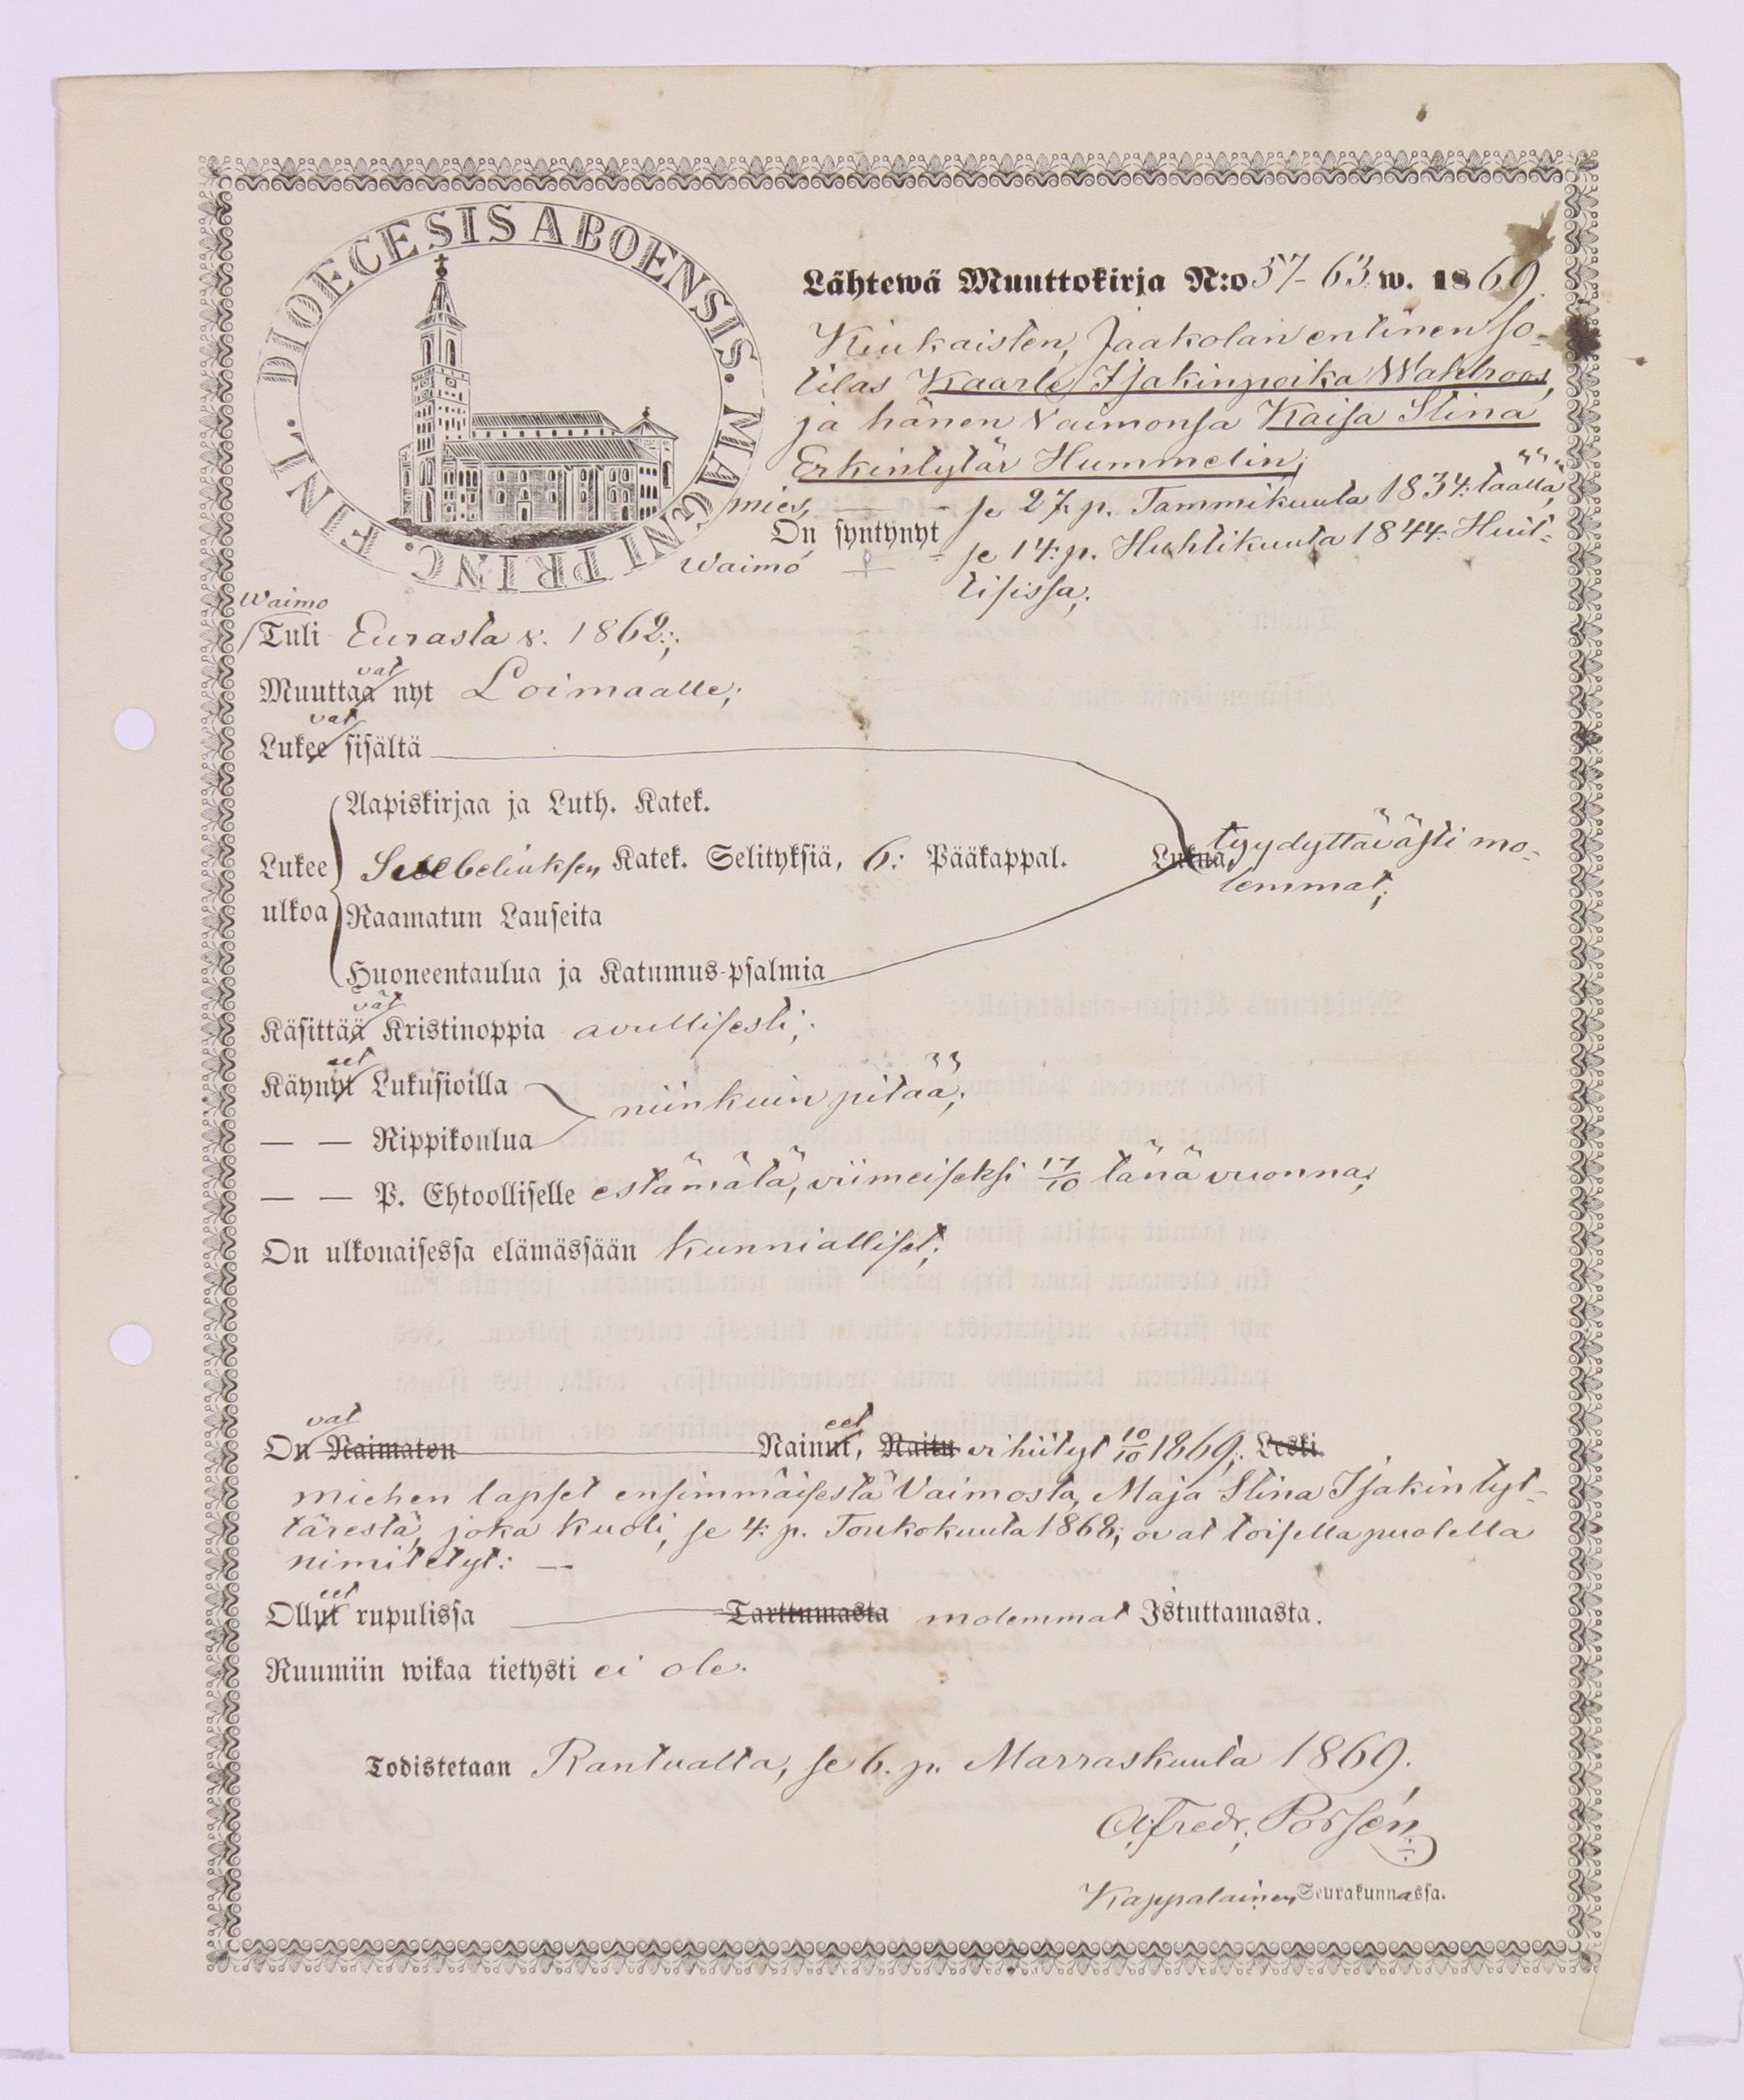 DIOECESIS ABOENSIS. MAGNI PRINC. FINL.
Lähtewä Muuttokirja N:o 57-63 w. 1869.
Kiukaisten, Jaakolan entinen so-
tilas Kaarle Isakinpoika Wahlroos,
ja hänen Vaimonsa Kaisa Stina
Erkintytär Hummelin;
mies, — - se 27. p. Tammikuuta 1834: täällä,
On syntynyt
Waimo — - se 14: p. Huhtikuuta 1844: Huit-
tisissa;
Waimo
/Tuli Eurasta v. 1862;
vat
Muuttaa nyt Loimaalle;
vat
Lukee sisältä
Aapiskirjaa ja Luth. Katek.
Lukee Sebeliuksen Katek. Selityksiä, 6: Pääkappal. Lukua, tyydyttävästi mo-
lemmat;
ulkoa Raamatun Lauseita
Huoneentaulua ja Katumus-psalmia
vät
Käsittää Kristinoppia avullisesti;
eet
Käynyt Lukusioilla
niinkuin pitää;
— — Rippikoulua
— — P. Ehtoolliselle estämätä, viimeiseksi 17/10 tänä vuonna;
On ulkonaisessa elämässään kunnialliset;
vat eet
On Naimaton Nainut, Naitu vihityt 10/10 1869; Leski.
miehen lapset ensimmäisestä Vaimosta, Maja Stina Isakintyt-
tärestä, joka kuoli, se 4: p. Toukokuuta 1868; ovat toisella puolella
nimitetyt: —
eet
Ollut rupulissa Tarttumasta molemmat Istuttamasta.
Ruumiin wikaa tietysti ei ole.
Todistetaan Rantualta, se 6. p. Marraskuuta 1869.
Alfredr. Porsén
Kappalainen Seurakunnassa.